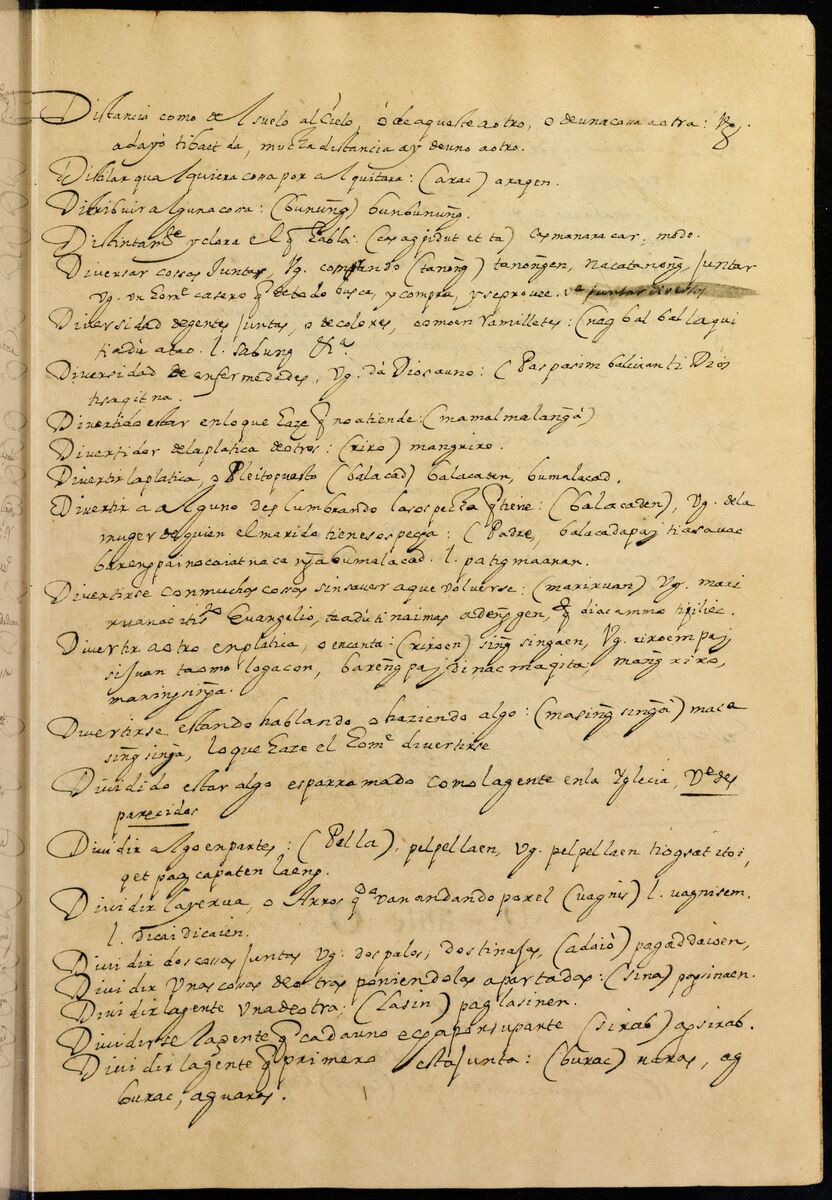 Distancio como del suelo al Cielo, o de aqueste a otro, o de una cossa a otra: Vg.
adayò tibaet da, mucha distancia ay de uno a otro.
Distilar qualquiera cossa por alquitara: (arac) aragen.
Distribuir alguna cosa: (bunung̃) bunbunung̃.
Distintamte y clara el q̃ habla:
Diversas cossas Juntas, Vg. comprando (tanong̃) tanong̃en, nacatanong̃, juntar
Vg. un home casero q̃ de todo busca, y compra, y se provee. juntar diversas
Diversidad de gentes juntas, o de colores, como en Ramilletes: (nagbalballaqui
tiadù atao. l. sabung &a.
Diversidad de enfermedades, Vg. dà Dios a uno: (Paspasim ti Dios
tisaqitna.
Divertido estar en lo que haze q̃ no atiende: (mamalmalang̃à)
Divertidor de la platica de otros: (riro) mangriro.
Divertir la platica, o Pleito puesto (balacad) balacaden, bumalacad.
Divertir a alguno deslumbrando la sospecha q̃ tiene: (balacaden), Vg. de la
muger de quien el marido tiene sospecha: (Padre, balacadapaj tiasauac
bareng̃pai no caiatna ca bumalacad. l. patigmaanan.
Divertirse con muchas cossas sin saver a que volverse: (mariruan) Vg. mari
ruanac Evangelio, ta adù ti naimas
Divertir a otro en platica, o encanta: (riroen) sing̃sing̃aen, Vg. riroem paj
si Juan tacmo logacon, bareng̃ paj di nac maqita, mang̃riro,
maning̃sing̃a.
Divertirse estando hablando o haziendo algo: (masing̃sing̃à) maca
sing̃sing̃a, lo que haze el home divertirse
Dividido estar algo esparramado como la gente en la Yglecia, Ve des
parecidos
Dividir algo en partes: (Pella), pelpellaen, Vg. pelpellaen
qet pagcapaten laeng.
Dividir la yerva, o Arros qdo van andando por el (vagnis) l. vagnisem.
l. dicaidicaien.
Dividir dos cossas juntas Vg. dos palos, dos tinajas, (adaiò) pagaddaioen,
Dividir unas cosas de otras poniendolas apartadas: (sina) pagsinaen.
Dividir la gente una de otra; (lasin) paglasinen.
Dividirse la gente q̃ cada uno por su parte (sirab) agsirab.
Dividir la gente q̃ primero esta junta: (burac) naras, ag
burac, aguaras.